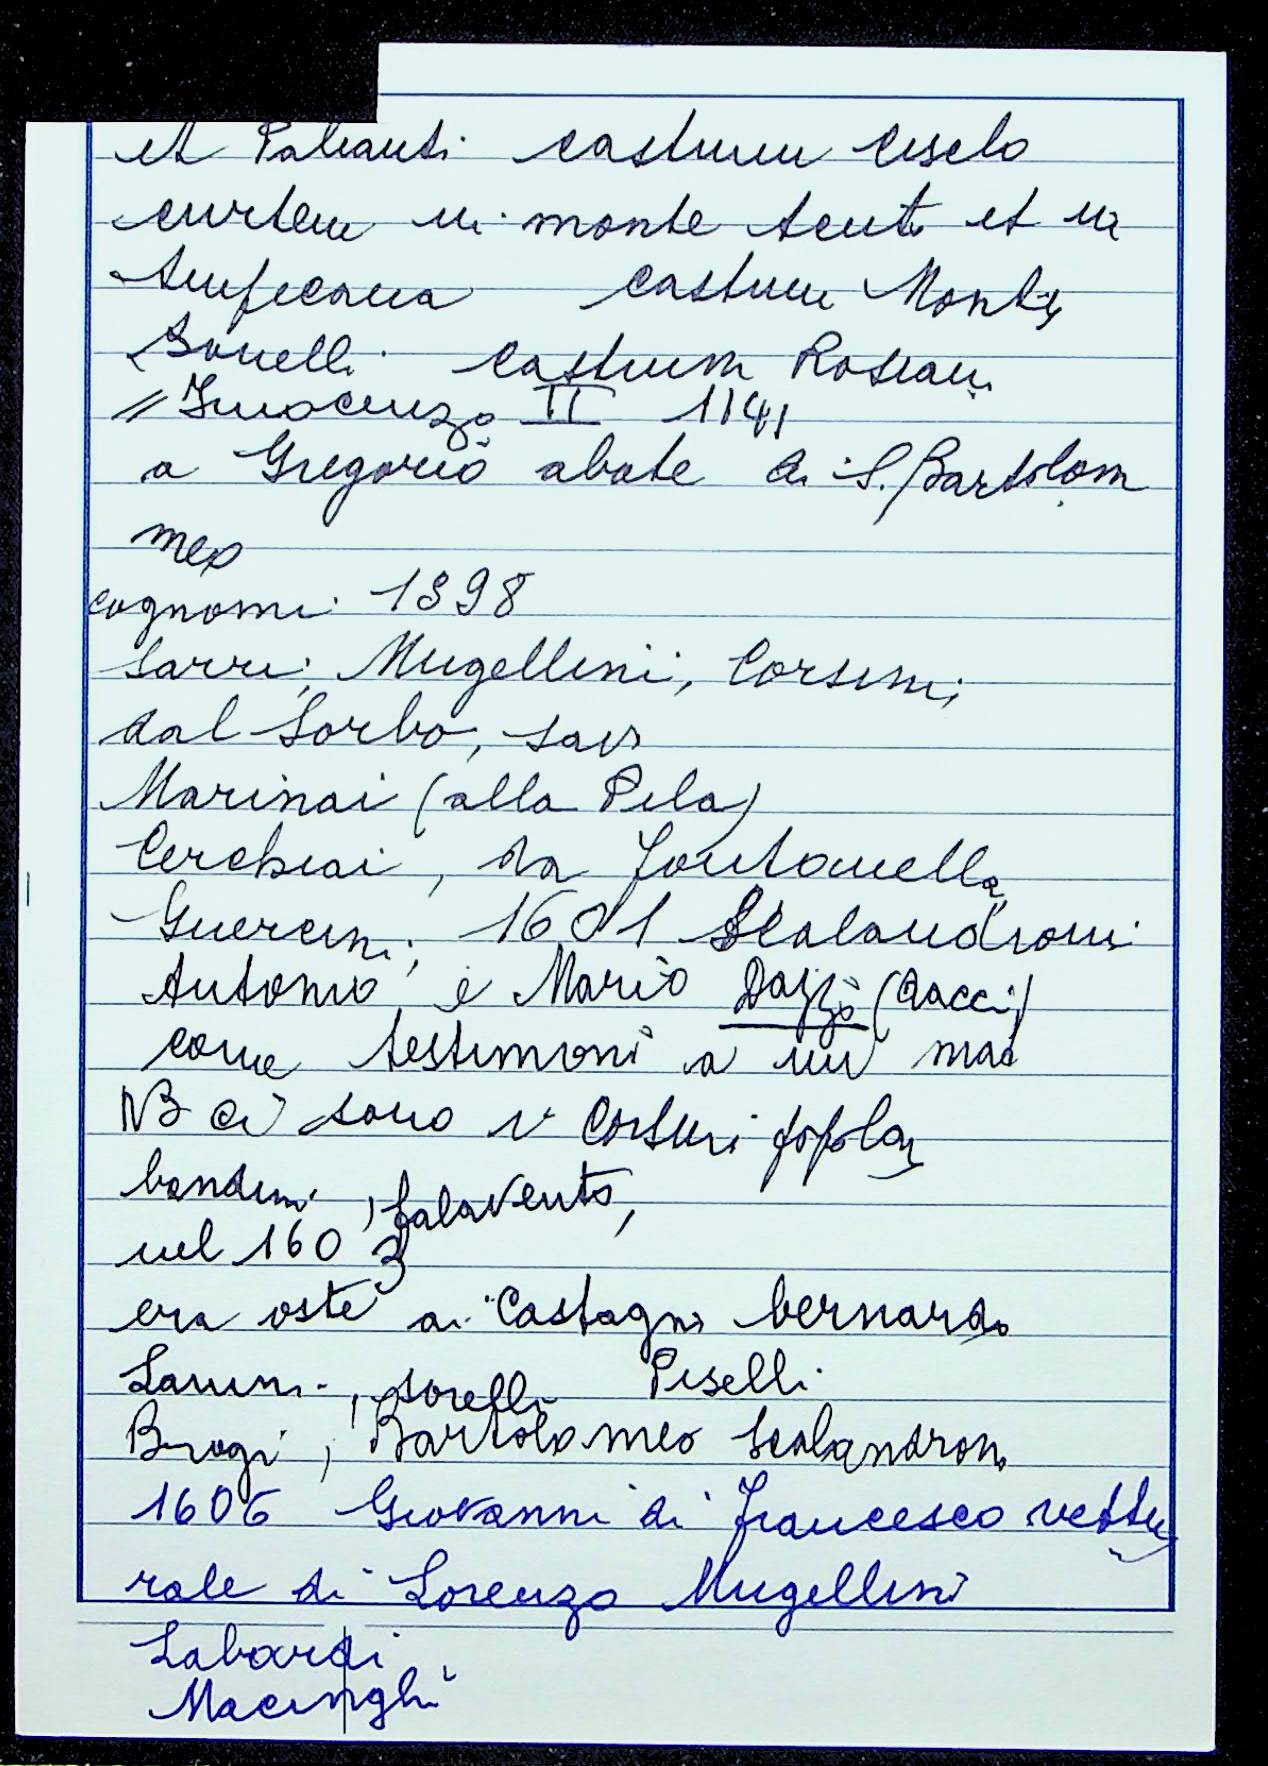 et castrum
curtem in monte acuto et in
castrum Montis
Bonelli castrum
// Innocenzo II 1141
a Gregorio abate di S. Bartolom
meo
cognomi 1598
Sarri, Mugellini, Corsini,
dal Sorbo,
Marinai (alla Pila)
Cerchiai, da Fontanella
Guercini, 1601 Scalandroni
Antonio e Mario Dazzi (Dacci)
come testimoni a un
NB ci sono i Corsini popolan
bandini, Falavento,
nel 1603
era oste a Castagno bernardo
Lanini, Sorelli Piselli
Brogi, Bartolomeo Scalandron
1606 Giovanni di Francesco vettu
rale di Lorenzo Mugellini
Labardi
Macinghi